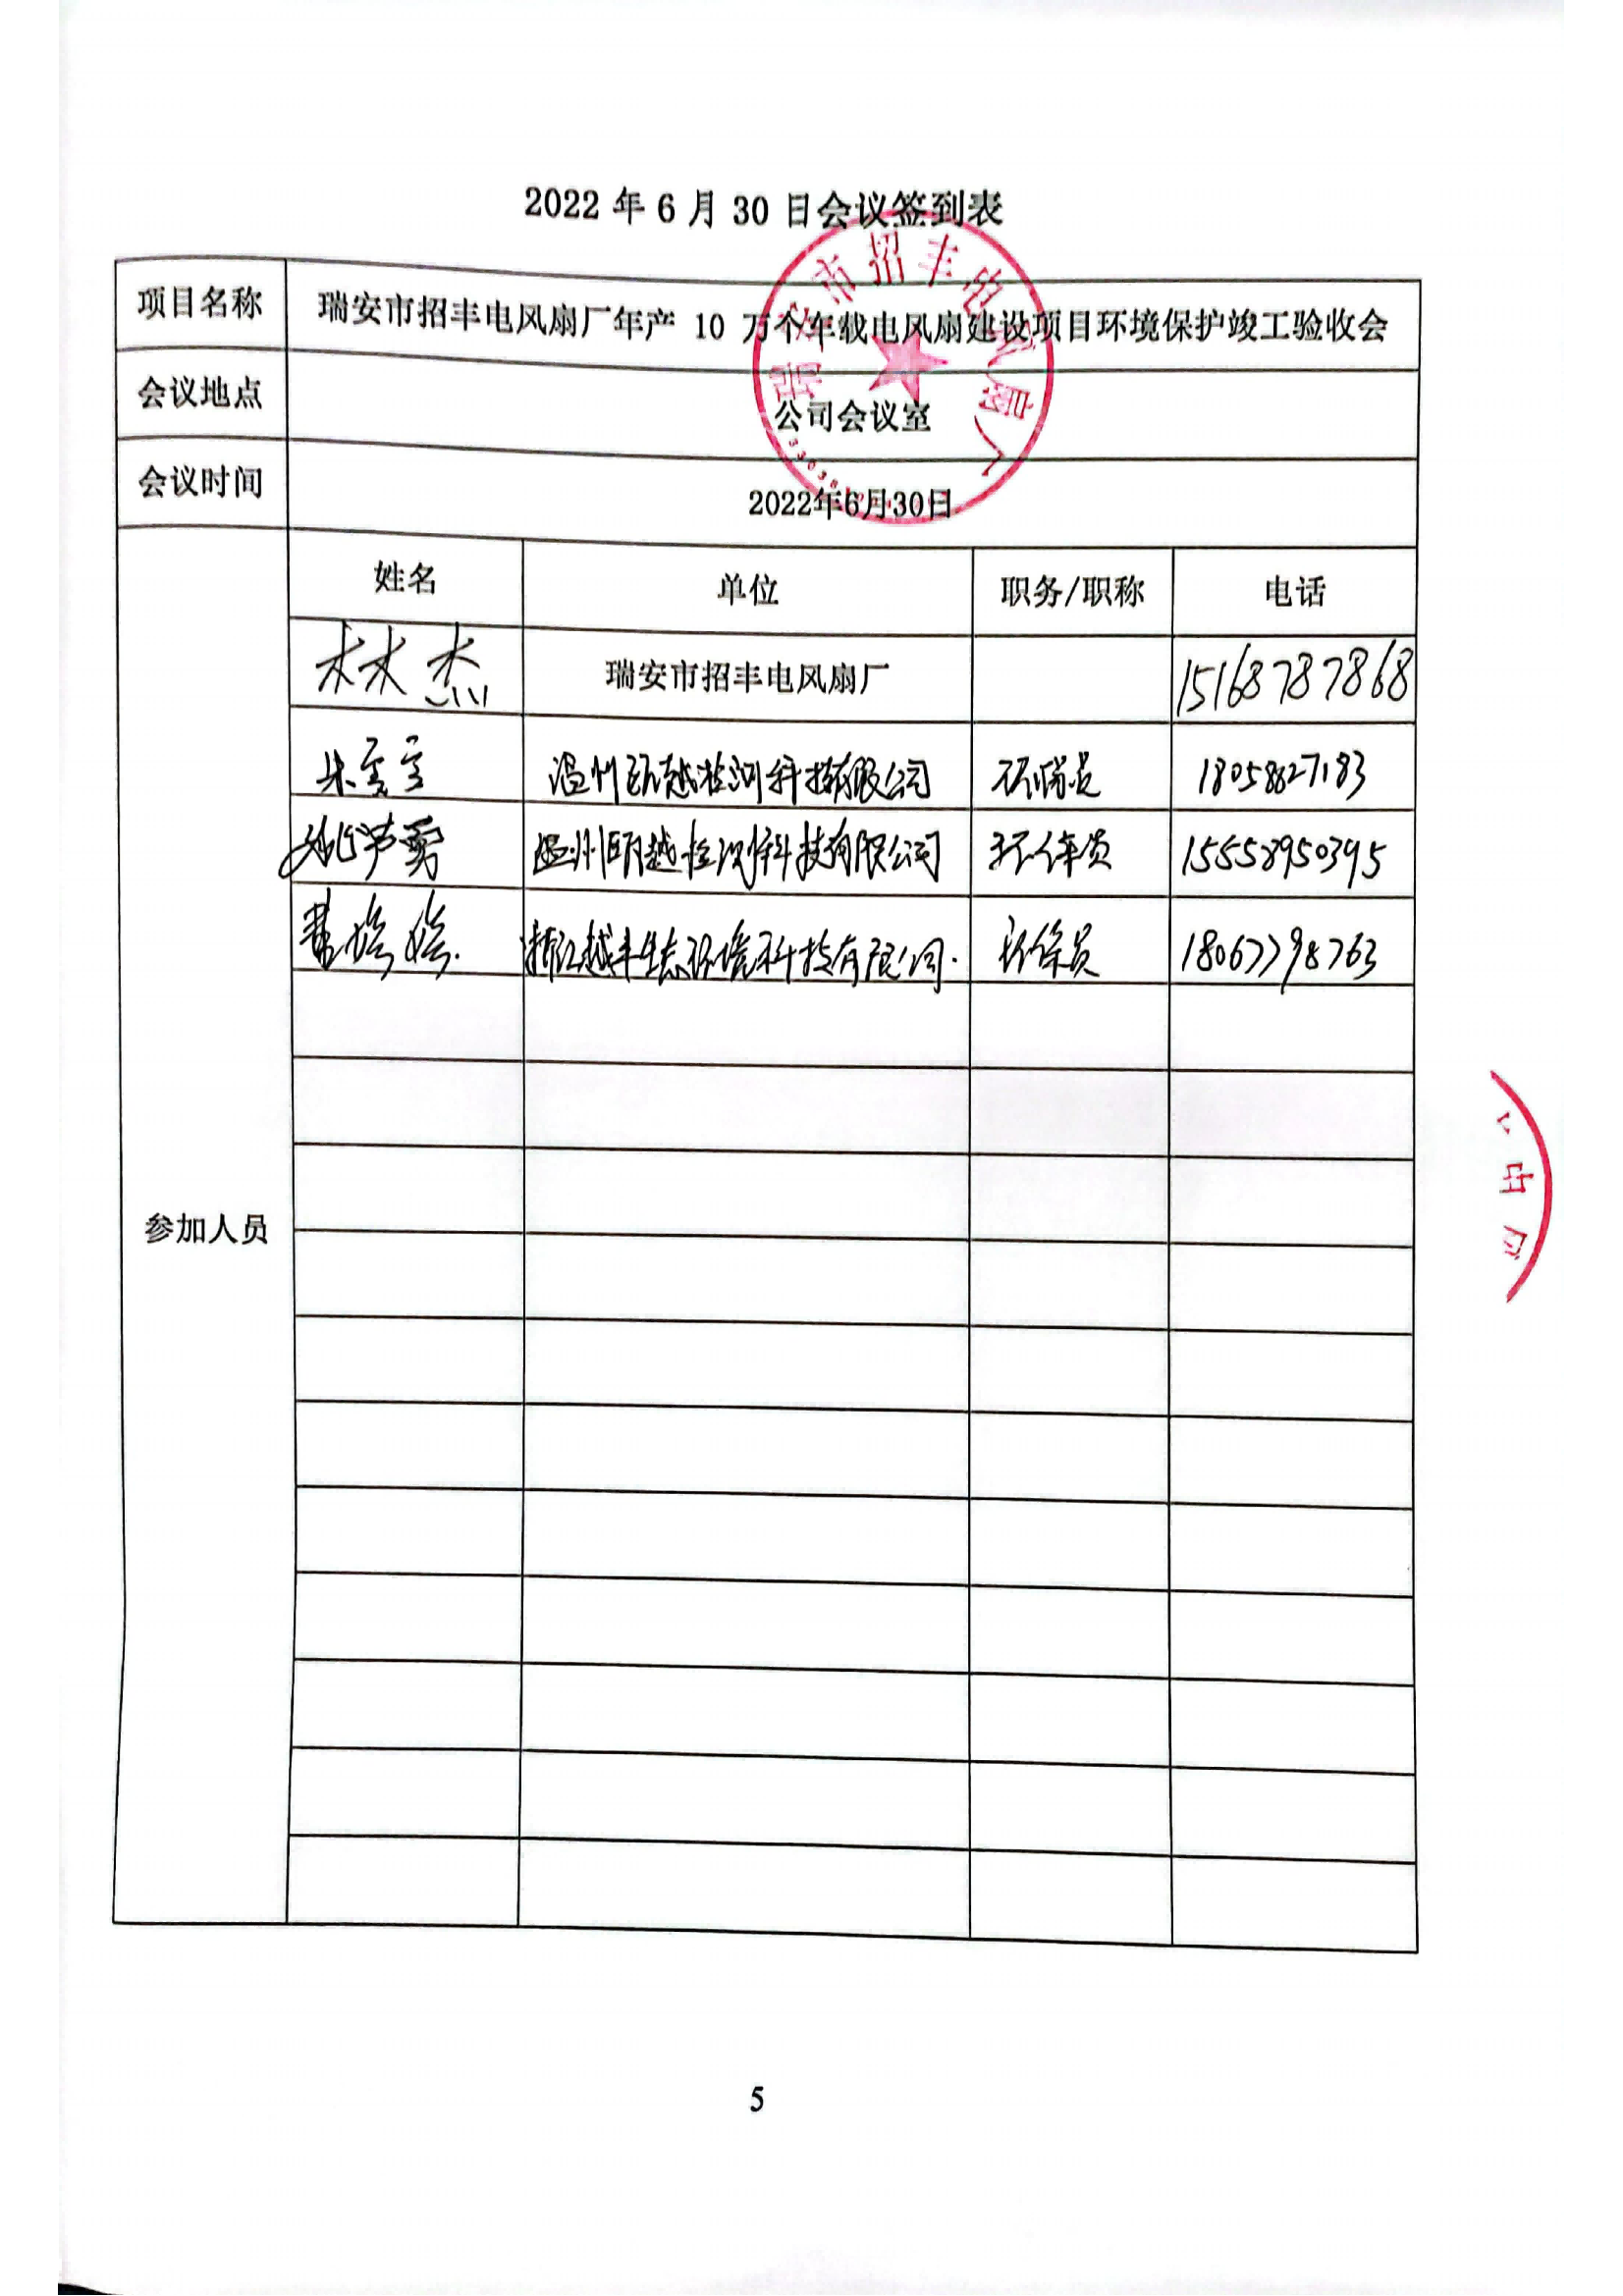 2022 年 6 月 30 日会议签到表
项目名称 瑞安市招丰电风扇厂年产 10 万个车载电风扇建设项目环境保护竣工验收会
会议地点 公司会议室
会议时间 2022年6月30日
瑞安市招丰电风扇厂
参加人员
姓名 单位 职务/职称 电话
林杰 瑞安市招丰电风扇厂 15168787868
温州瓯越检测科技有限公司 环保员 18058827183
温州瓯越检测科技有限公司 环保员 15558950395
浙江越丰生态环境科技有限公司. 环保员 18067798763
5